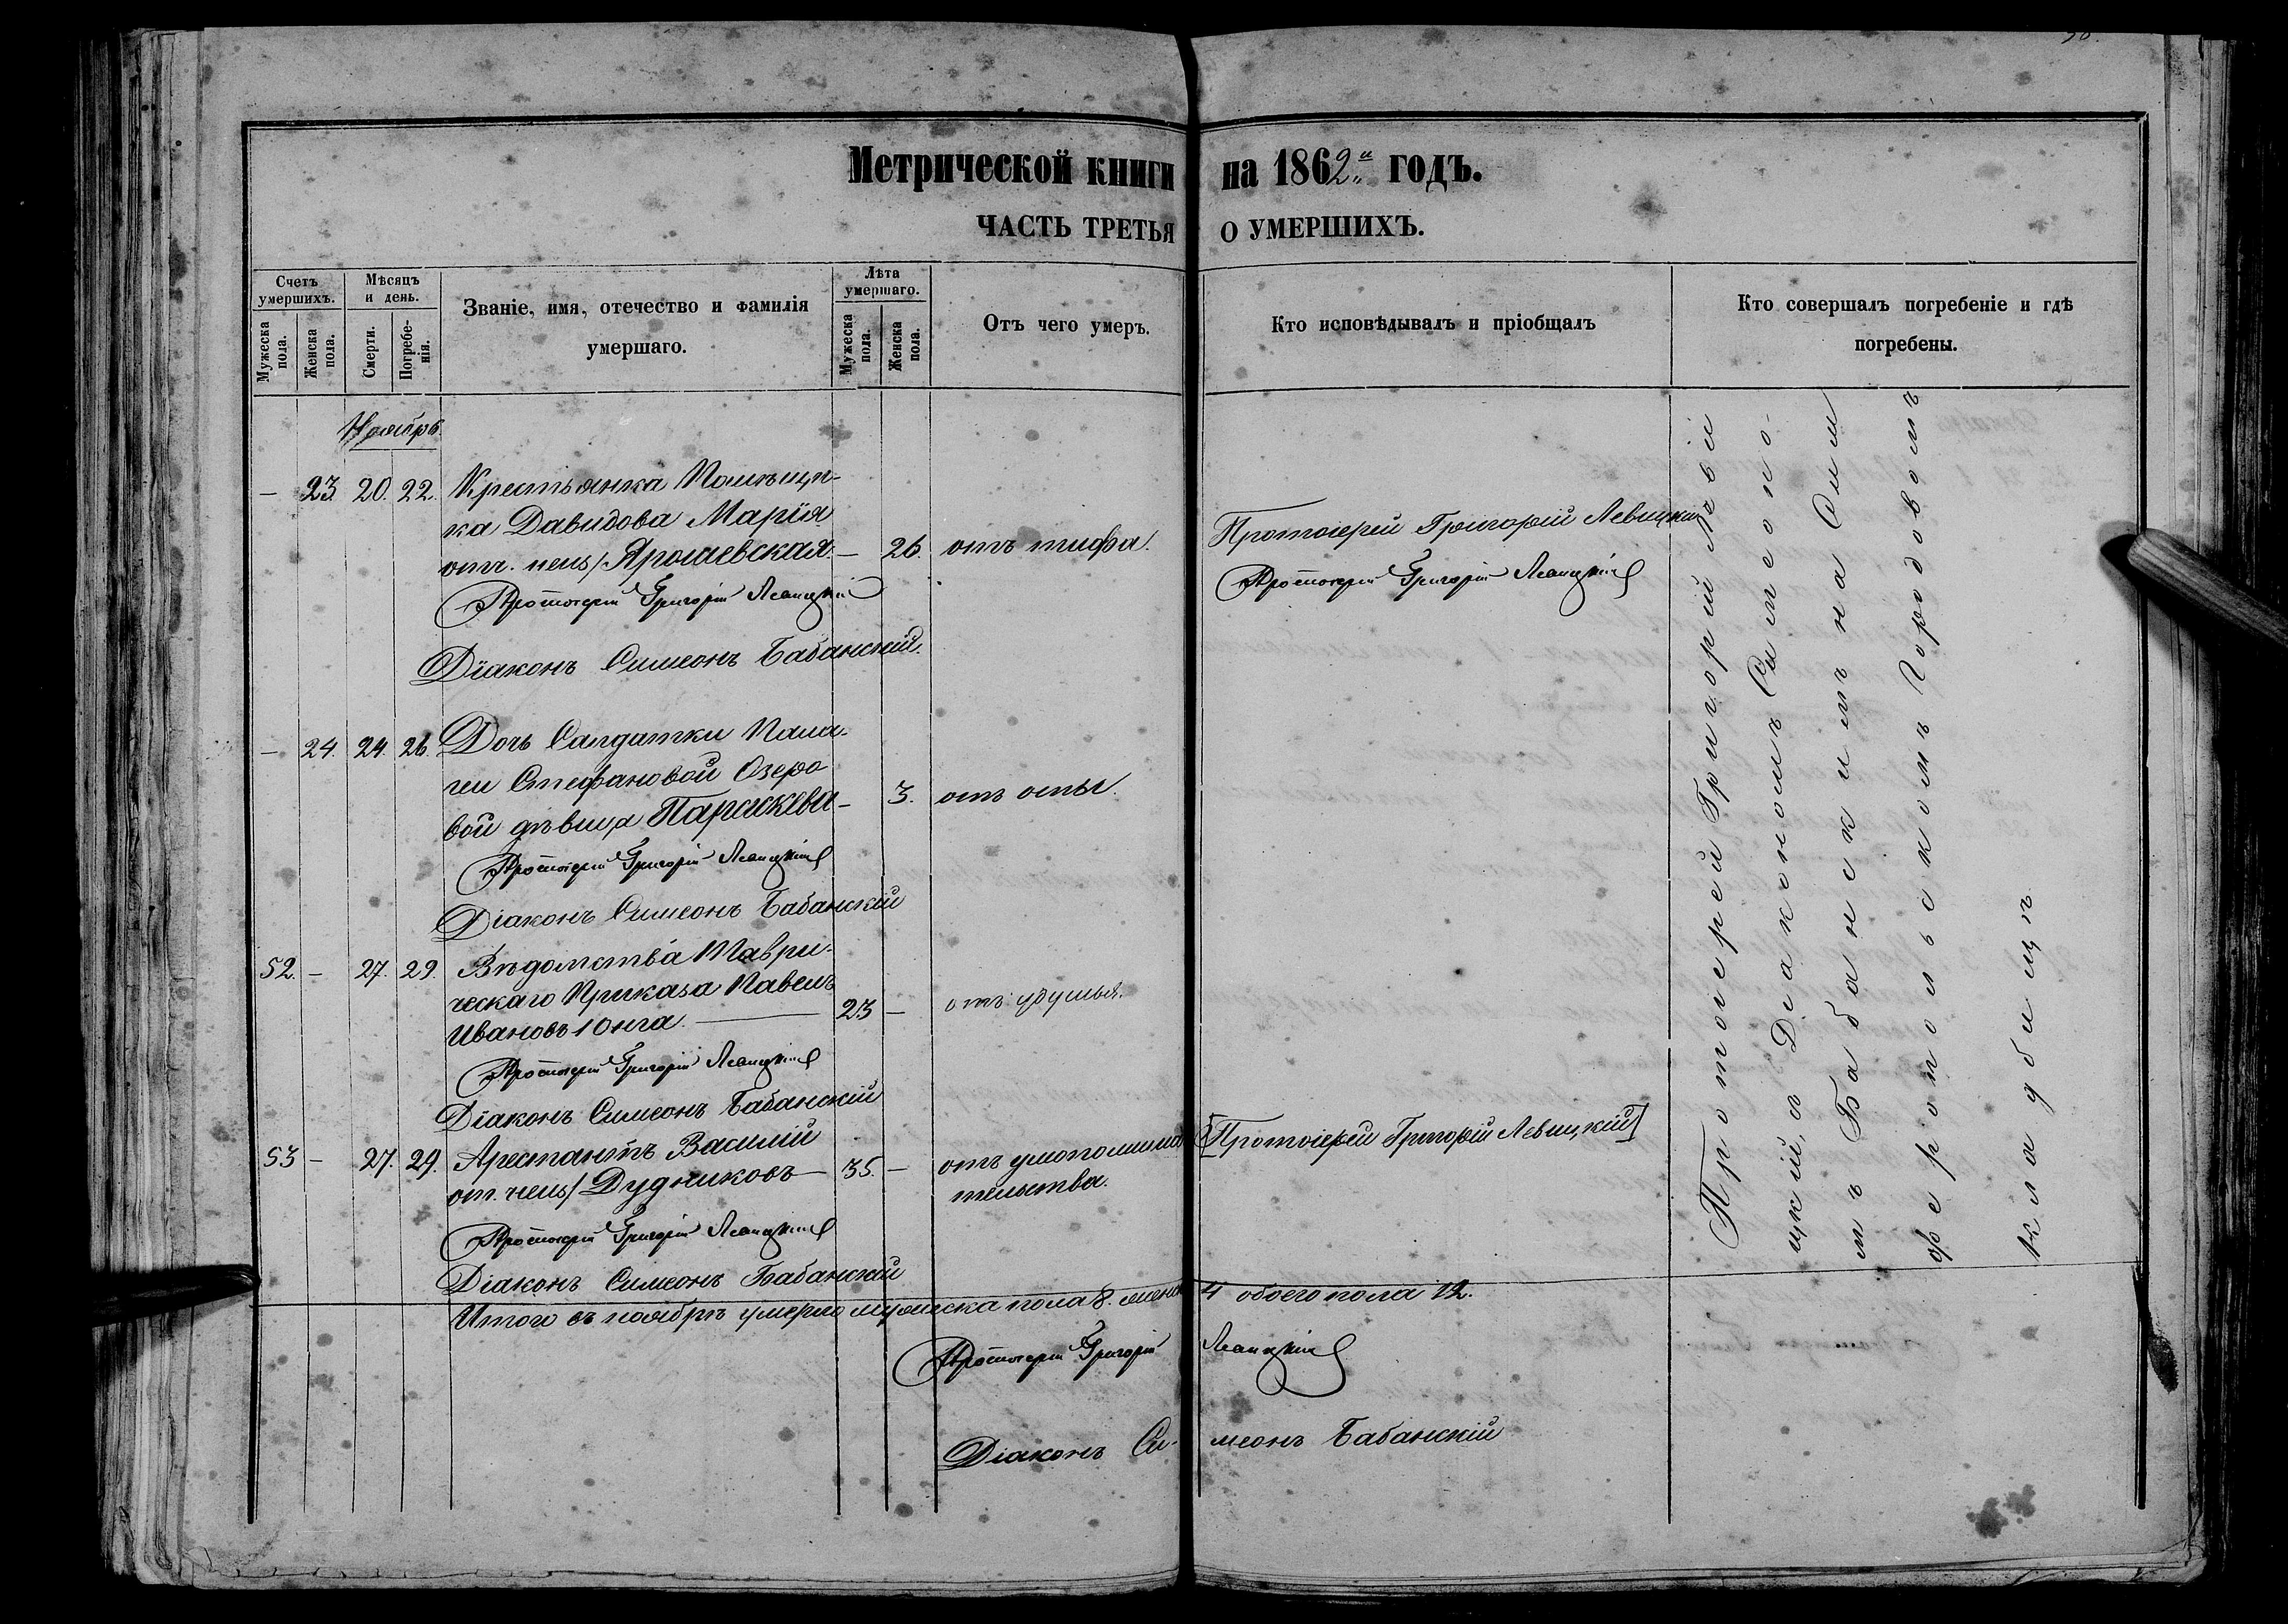 Метрической книги на 1862й годъ.
ЧАСТЬ ТРЕТЬЯ О УМЕРШИХЪ.
Счетъ умершихъ.
Мужеска пола.
Женска пола.
Мѣсяцъ и день.
Смерти.
Погребе-
нія.
Званіе, имя, отечество и фамилія
умершаго.
Лѣта умершаго.
Мужеска пола.
Женска пола.
Отъ чего умеръ.
Кто исповѣдывалъ и пріобщалъ
Кто совершалъ погребеніе и гдѣ
погребены.
Ноябрь.
— 23 20. 22. Крестьянка Помѣщи-
ка Давидова Марія
отч. неиз/ Ярошевская — 26. отъ тифа. Протоіерей Григорій Левицкій
Протоіерей Григорій Левицкій Протоіерей Григорій Левицкій
Діаконъ Симеонъ Бабанскій.
— 24. 24. 26. Дочь Салдатки Пала-
геи Стефановой Озеро
вой дѣвица Параскева — 3. отъ оспы.
Протоіерей Григорій Левицкій
Діаконъ Симеонъ Бабанскій
52. — 27. 29. Вѣдомства Таври-
ческаго Приказа Павелъ
Ивановъ Юнга 23 — отъ удушья.
Протоіерей Григорій Левицкій
Діаконъ Симеонъ Бабанскій
53 — 27. 29. Арестантъ Василій
от. неиз/ Дудниковъ — 35. — отъ умопомеша
тельства. [Протоіерей Григорій Левицкій]
Протоіерей Григорій Левицкій
Діаконъ Симеонъ Бабанскій
Протоіерей Григорій Леви
цкій, съ Діакономъ Симеоно-
мъ Бабанскимъ на Сим
феропольскомъ Городовомъ
кладбищѣ
Итого въ ноябрѣ умерло мужеска пола 8. женск 4 обоего пола 12.
Протоіерей Григорій Левицкій
Діаконъ Си-меонъ Бабанскій